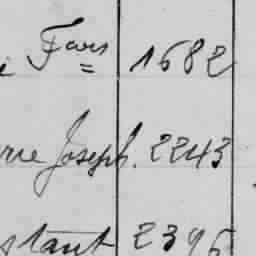 Fçois 1682
rre Joseph. 2243
stant 2395